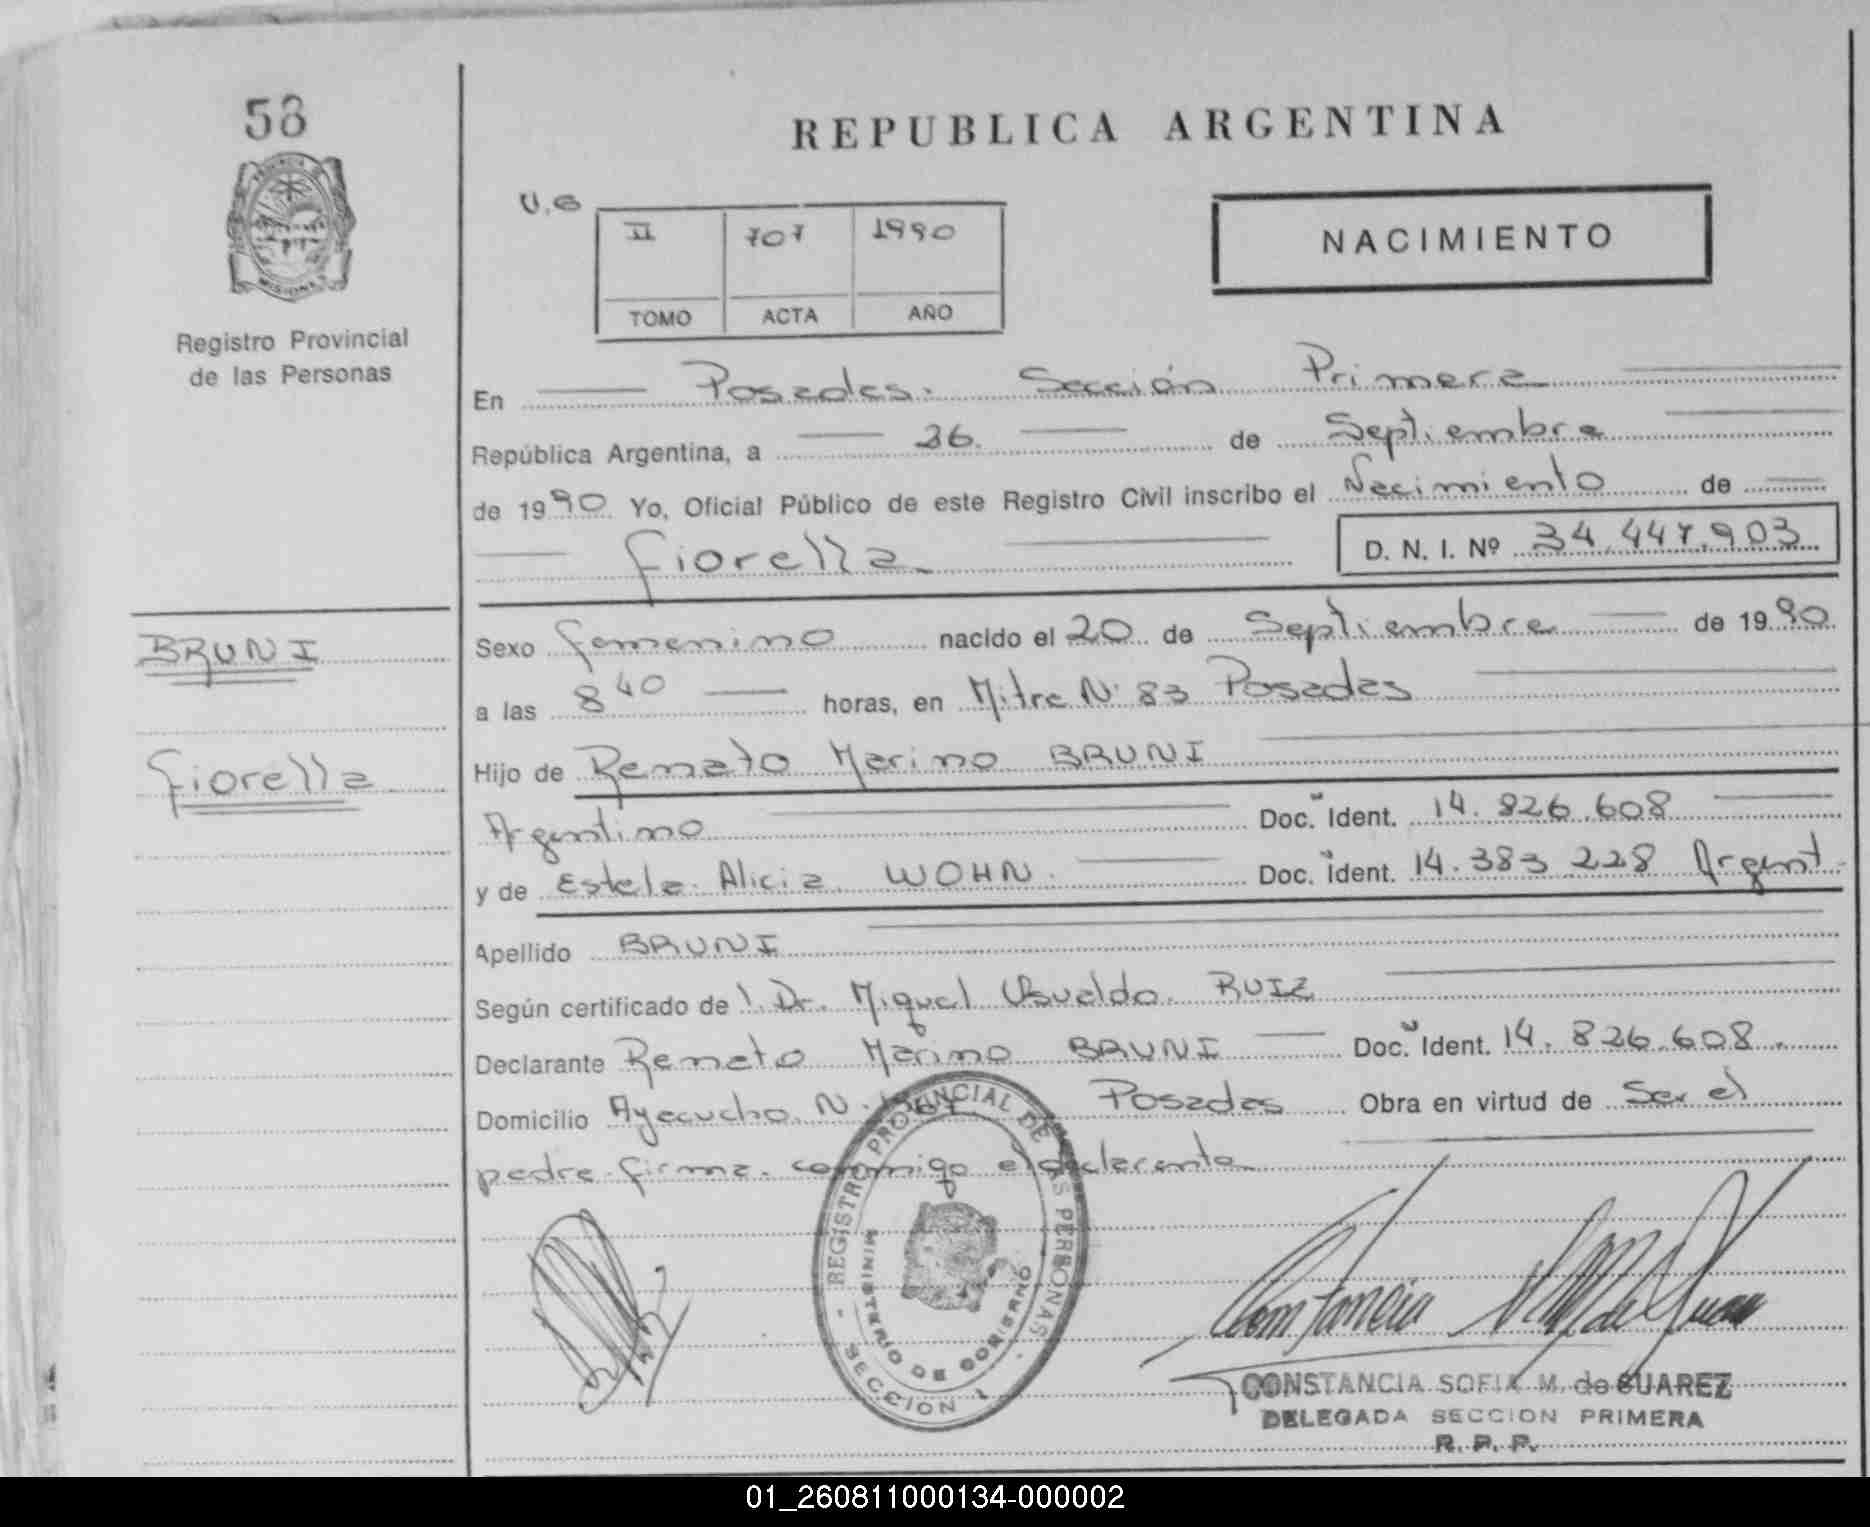 58
REPUBLICA ARGENTINA
U.G
II 707 1990
TOMO ACTA AÑO
NACIMIENTO
Registro Provincial
de las Personas
En Posadas. Sección Primera
República Argentina, a 26. de Septiembre
de 1990 Yo, Oficial Público de este Registro Civil inscribo el Nacimiento de
Fiorella D. N. I. Nº 34.447.903
BRUNI
Sexo femenino nacido el 20 de Septiembre de 1990
a las 8 40 horas, en Mitre Nº 83 Posadas
Fiorella
Hijo de Renato Marino BRUNI
Argentino Doc. Ident. 14.826.608
y de Estela Alicia WOHN. Doc. Ident. 14.383.228 Argent.
Apellido BRUNI
Según certificado de Dr. Miguel Osvaldo RUIZ
Declarante Renato Marino BRUNI Doc. Ident. 14.826.608.
Domicilio Ayacucho N. Posadas Obra en virtud de Ser el
padre firma conmigo el declarante
REGISTRO PROVINCIAL DE LAS PERSONAS
MINISTERIO DE GOBIERNO
SECCION 1
CONSTANCIA SOFIA M. de SUAREZ
DELEGADA SECCION PRIMERA
R. P. P.
01_260811000134-000002